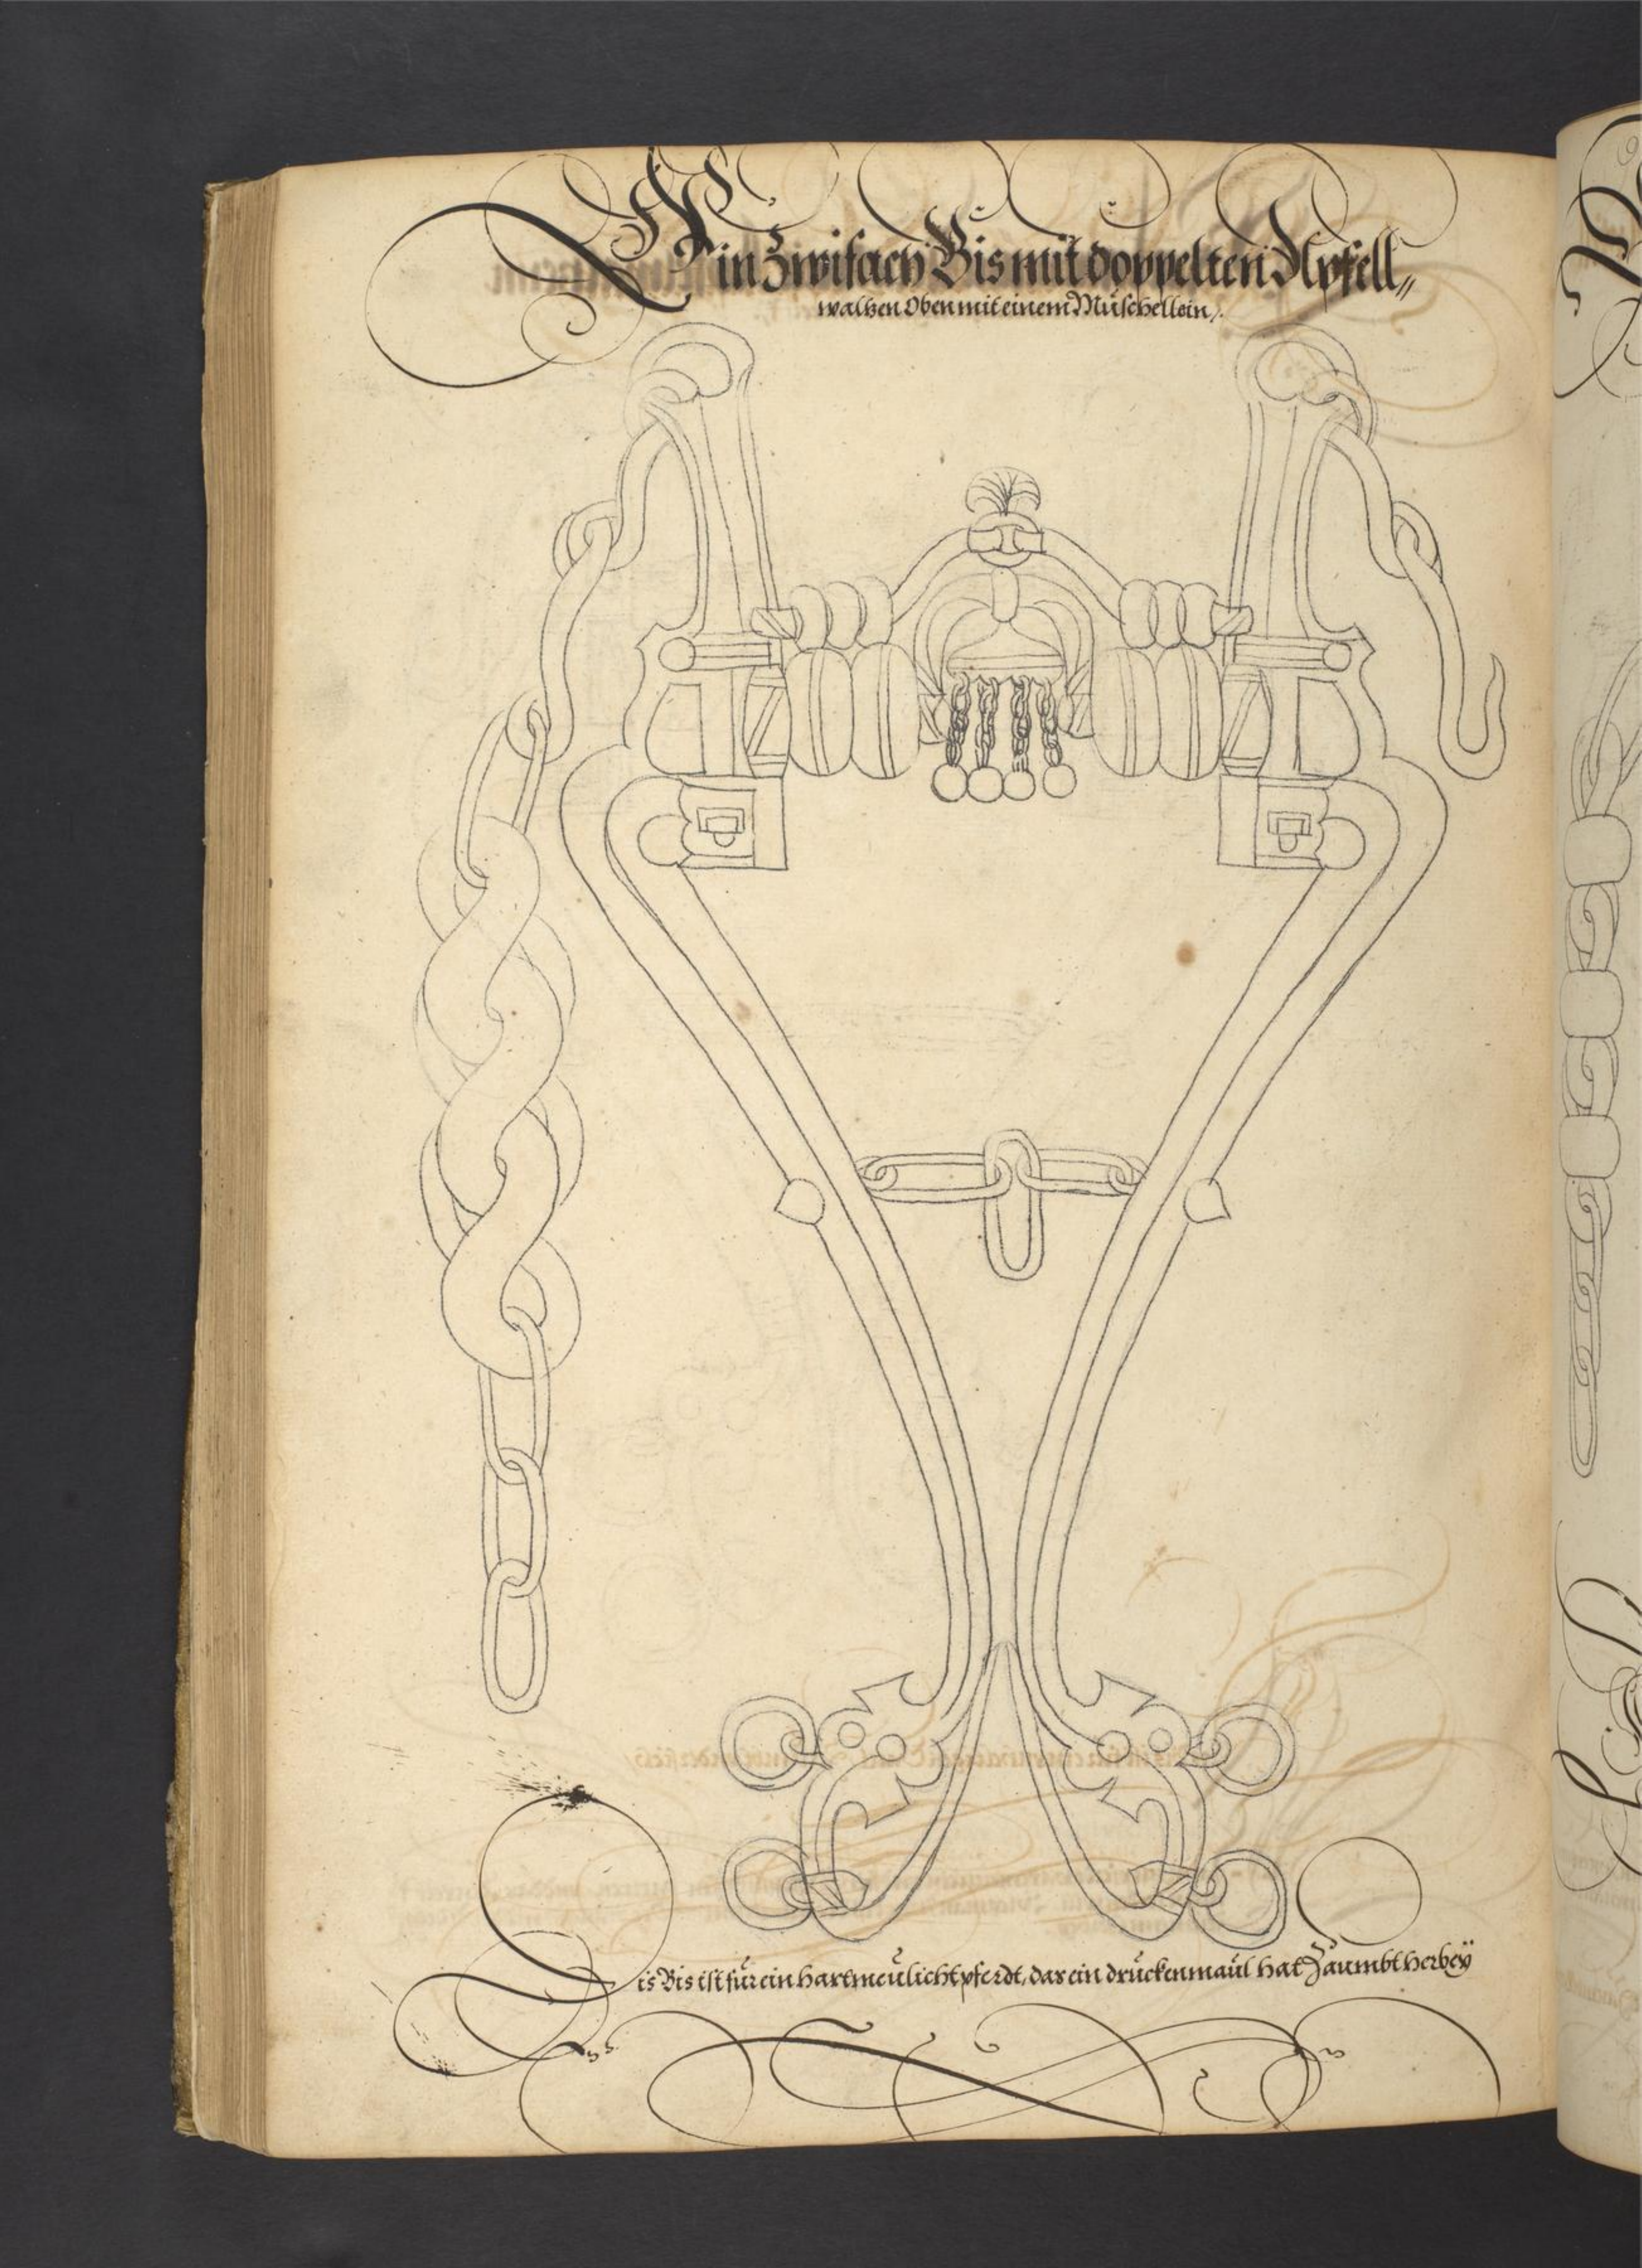 Ein Zwifach Bis mit doppelten Apfell„
walhen Oben mit einem Müschellein/.
Dis Bis ist für ein hartmeülicht pferdt, das ein drucken maül hat Zäumbt herbeÿ